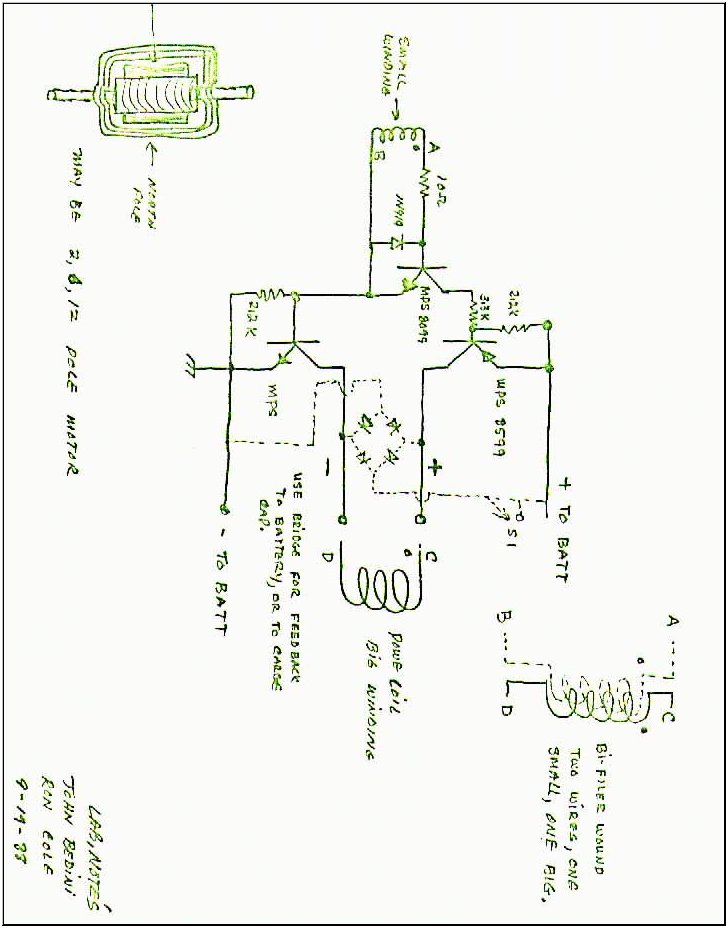 A
C
B
D
BI-FILER WOUND
TWO WIRES, ONE
SMALL, ONE BIG,
+ TO BATT
S1
2.2K
3.3K
MPS 8599
MPS 8099
SMALL
WINDING
A
B
10Ω
+
C
D
-
POWE COIL
BIG WINDING
2.2K
MPS
USE BRIDGE FOR FEEDBACK
TO BATTERY, OR TO CARGE
CAP.
- TO BATT
NORTH
POLE
MAY BE 2, 12 POLE MOTOR
LAB, NOTES
JOHN BEDINI
RON COLE